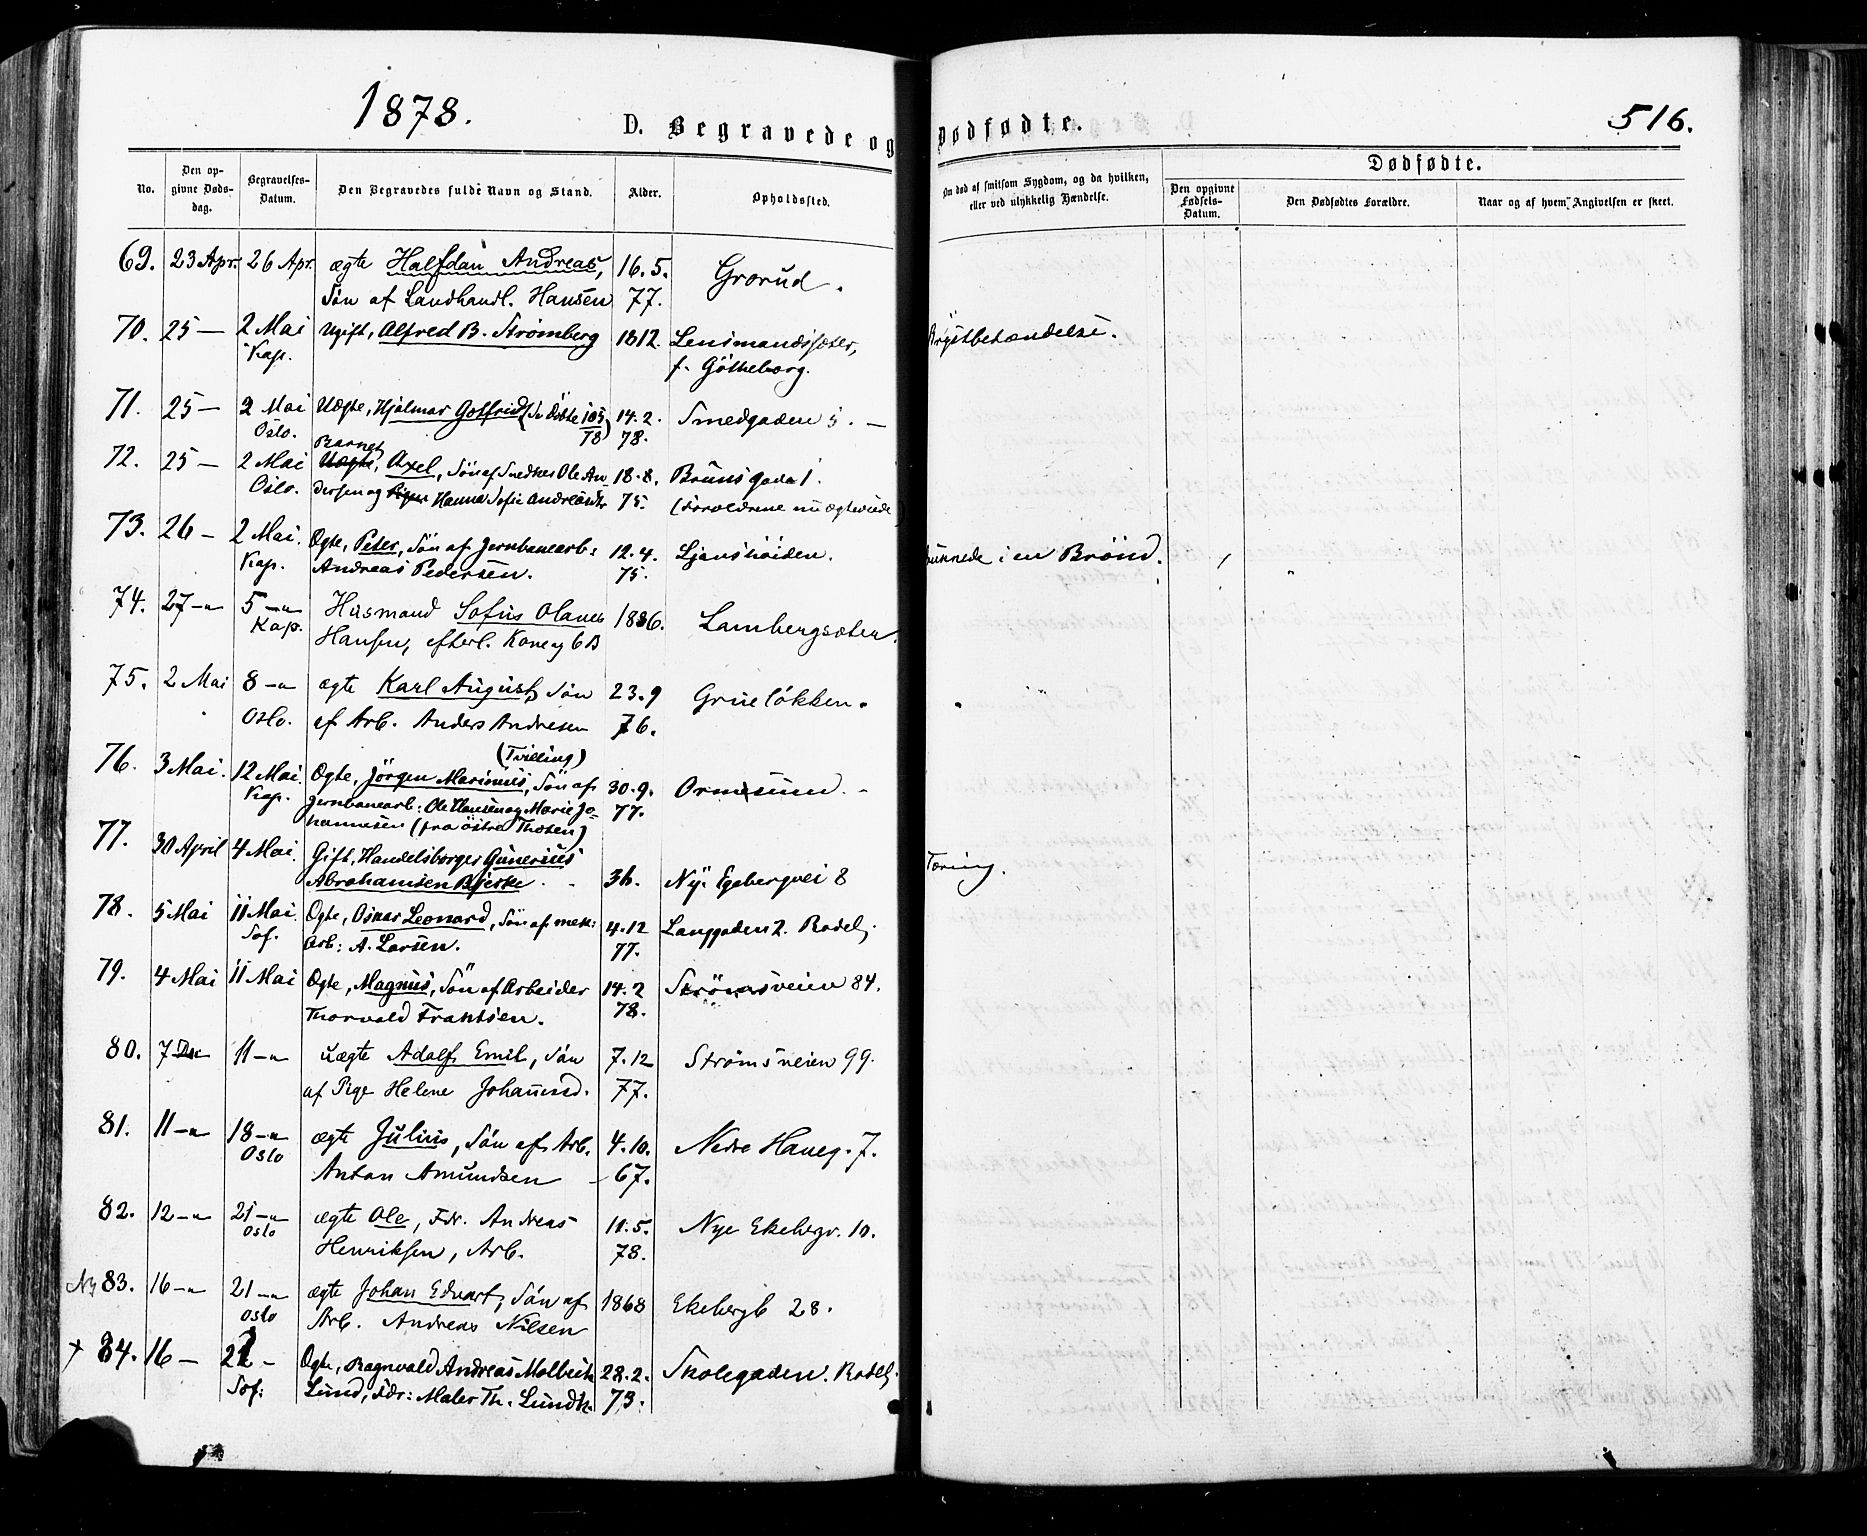 1878.
516.
D. Begravede og Dødfødte.
No.
Den opgivne Dødsdag.
Begravelses-Datum.
Den Begravedes fulde Navn og Stand.
Alder.
Opholdssted.
Om død af smitsom Sygdom, og da hvilken, eller ved ulykkelig Hændelse.
Dødfødte.
Den opgivne Fødsels-Datum.
Den Dødfødtes Forældre.
Naar og af hvem Angivelsen er skeet.
69. 23 Apr. 26 Apr. ægte Halfdan Andreas, 16. 5. Grorud.
Søn af Landhandl. Hansen 77.
70. 25 — 2 Mai Ugift, Alfred B. Strömberg 1812. Lensmandssæter,
Kap. f. Götheborg.
71. 25 — 2 Mai Uægte, Hjalmar Gotfried 14. 2. Smedgaden 5. —
Oslo. 78 78.
72. 25 — 2 Mai Barnet Uægte, Axel, Søn af Snedker Ole An- 18. 8. Brunsgade 1.
Oslo. dersen og Pigen Hanna Sofie 75. (Forældrene nu ægteviede)
73. 26 — 2 Mai. Ægte, Peter, Søn af Jernbanearb: 12. 4. Ljanshöiden. i en Brönd.
Kap. Andreas Pedersen. 75.
74. 27 —" 5 —" Husmand Sofus Olaues 1836. Lambergsæter.
Kap. Hansen, efterl. Kone og 6 B
75. 2 Mai 8 —" ægte Karl August, Søn 23. 9 Grueløkken.
Oslo. af Arb. Anders Andresen 76.
(Tvilling)
76. 3 Mai. 12 Mai. Ægte, Jörgen Marinius, Søn af 30. 9. Ormsund. —
Kap. Jernbanearb: Ole Hansen og Marie Jo- 77.
hannesen (fra östre Thosen)
77. 30 April 4 Mai. Gift, Handelsborger Gunerius
Abrahamsen Bjerke. 36. Ny. Egebergvei 8 Tæring.
78. 5 Mai 11 Mai. Ægte, Oskar Leonard, Søn af mek: 4. 12 Langgaden 2. Rodel.
Sof. Arb: A. Larsen. 77.
79. 4 Mai 11 Mai Ægte, Magnus, Søn af Arbeider 14. 2 Strömsveien 84.
Thorvald Frantsen. 78.
80. 7 —" 11 —" uægte Adolf Emil, Søn 7. 12 Strømsveien 99.
af Pige Helene Johannesd. 77.
81. 11 —" 18 —" ægte Julius, Søn af Arb. 4. 10. Nedre Haveg. 7.
Oslo Anton Amundsen 67.
82. 12 —" 21 —" ægte Ole, Fdr. Andreas 11. 5. Nye Ekebergv. 10.
Oslo Henriksen, Arb. 78.
83. 16 —" 21 —" ægte Johan Edvart, Søn af 1868 Ekebergb 28.
Oslo Arb. Andreas Nilsen
+ 84. 16 — 21 — Ægte, Ragnvald Andreas 28. 2. Skolegaden. Rodel.
Sof: Lund, Fdr: Maler Th. Lund 73.